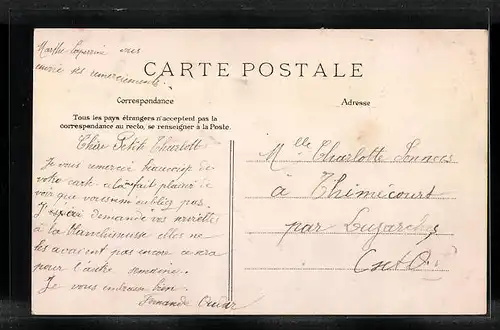 Marthe vous
envoie ses remerciements
CARTE POSTALE
Correspondance
Adresse
Tous les pays étrangers n'acceptent pas la
correspondance au recto, se renseigner à la Poste.
Chère Petite Charlotte
Je vous remercie beaucoup de
votre carte a fait plaisir de
voir que vous oubliez pas.
J'
à la Blanchisseuse elles ne
les avaient pas encore ce sera
pour l'autre semaine.
Je vous embrasse bien
Fernande
Mlle Charlotte
à Thimécourt
par Luzarches